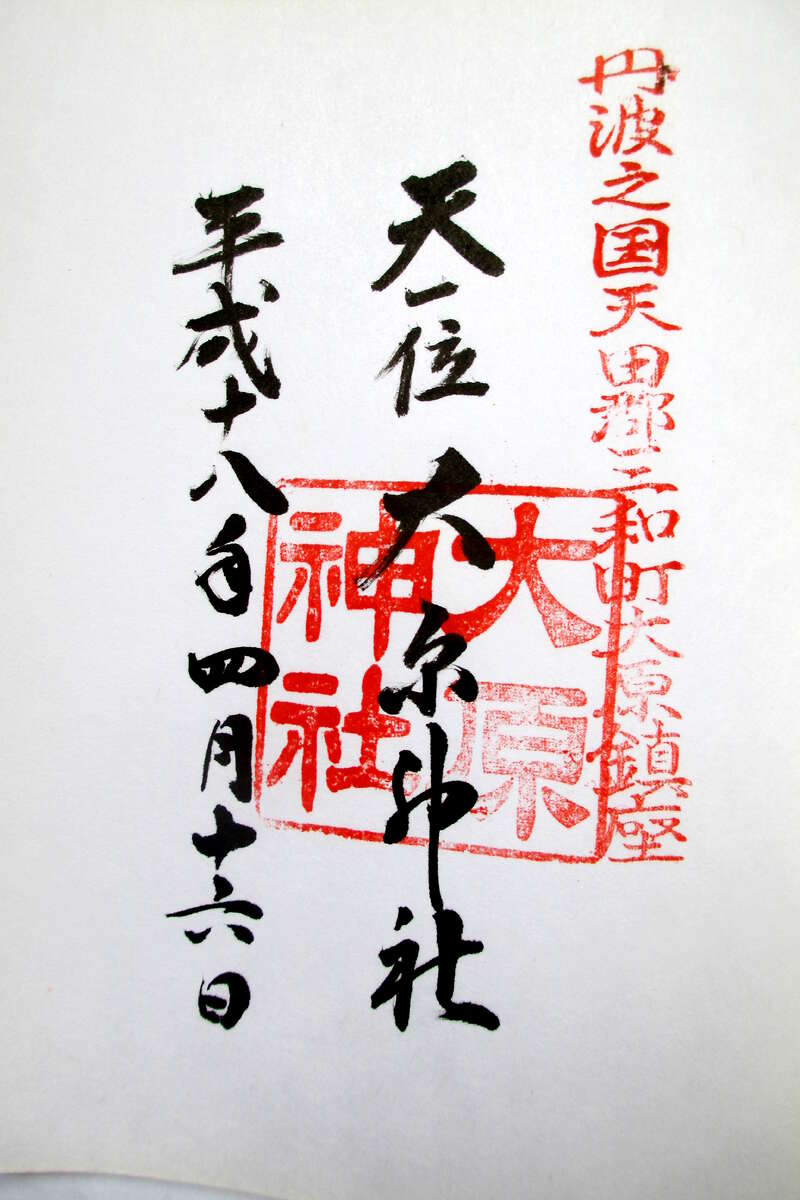 丹波之国天田郡三和町大原鎮座
天一位 大原神社
大原神社
平成十八年四月十六日